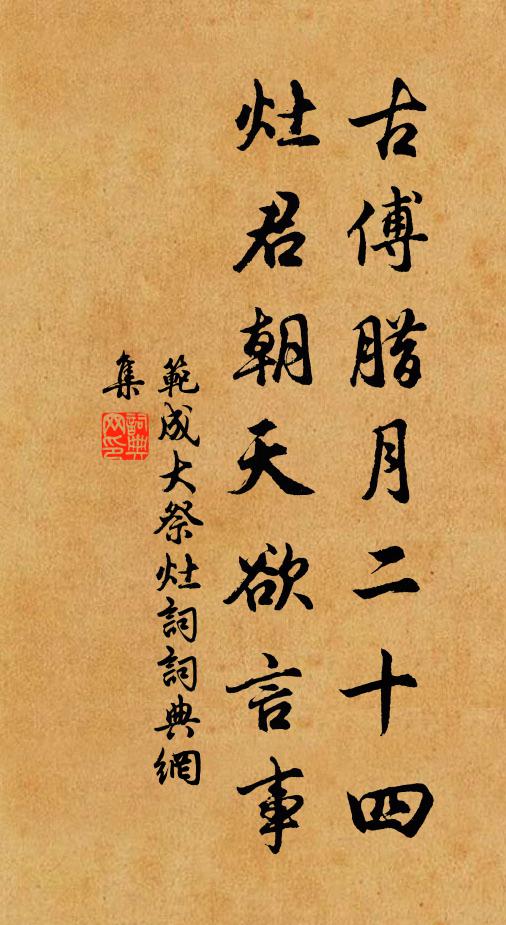 古傅腊月二十四
灶君朝天欲言事
範成大祭灶詞詞典網
集
詞典网印